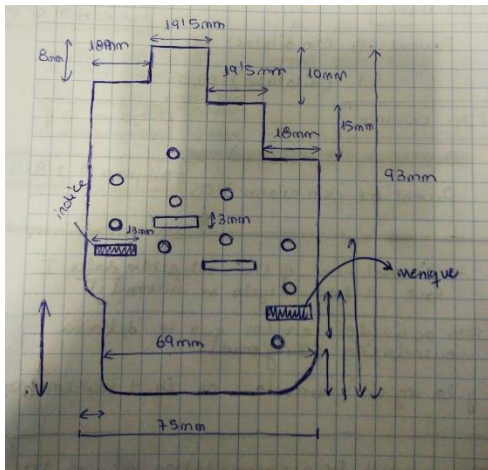 19'5mm
18mm
8mm
19'5mm
10mm
18mm
15mm
93mm
indice
13mm
3mm
meñique
69mm
75mm